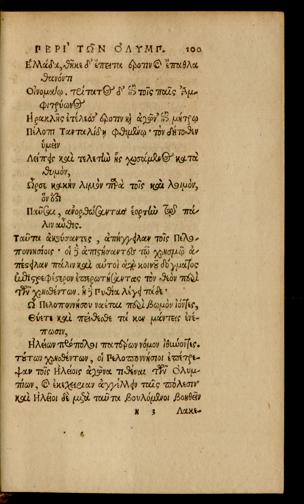 ΠΕΡΙ ΤΩΝ ΟΛΥΜΠ. 100
Ελλάδα, θῆκε δ' ἔπειτα βροτὴν ἔπαθλα
θανόντι
Οἰνομάῳ. τρίτατος δ' τοῖς παῖς Ἀμ-
φιτρύωνος
Ηρακλῆς ἐτέλεσ' ἔροτιν ἀγῶν μήτρω
Πέλοπι Τανταλίδη φθιμένῳ. τὸν
ὑμεῖν
Λείπετε καὶ τελετὼ ἧς χωσάμενος κατὰ
θυμὸν,
Ωρσε κακὴν λιμὸν τοῖς καὶ λοιμὸν,
Παῦσαι, ἀνορθώσαντας ἑορτὴν πά-
λιν αὖθις.
Ταῦτα ἀκούσαντες, ἀπήγγειλαν τοῖς Πελο-
ποννησίοις. οἱ ἀπιστήσαντες τῷ χρησμῷ ἀ-
πέστειλαν πάλιν καὶ αὐτοὶ ἀπὸ κοινοῦ δόγματος
ἐπερωτήσαντας τὸν θεὸν περὶ
τῶν χρησθέντων. ἡ Πυθία λέγει τάδε.
Ω Πελοποννήσου ναέται περὶ βωμὸν ἰόντες,
Θύετε καὶ πείθεσθε τά κεν μάντεις ἐνέ-
πωσιν,
Ηλείων πρόπολοι πατέρων νόμον ἰθύνοντες.
τούτων χρησθέντων, οἱ Πελοποννήσιοι ἐπέτρε-
ψαν τοῖς Ηλείοις ἀγῶνα τιθέναι τῶν Ολυμ-
πίων, ἐκεχειρίαν ἀγγέλλειν ταῖς πόλεσιν
καὶ Ηλεῖοι δὲ μετὰ ταῦτα βουλόμενοι βοηθεῖν
n 3 Λακε-